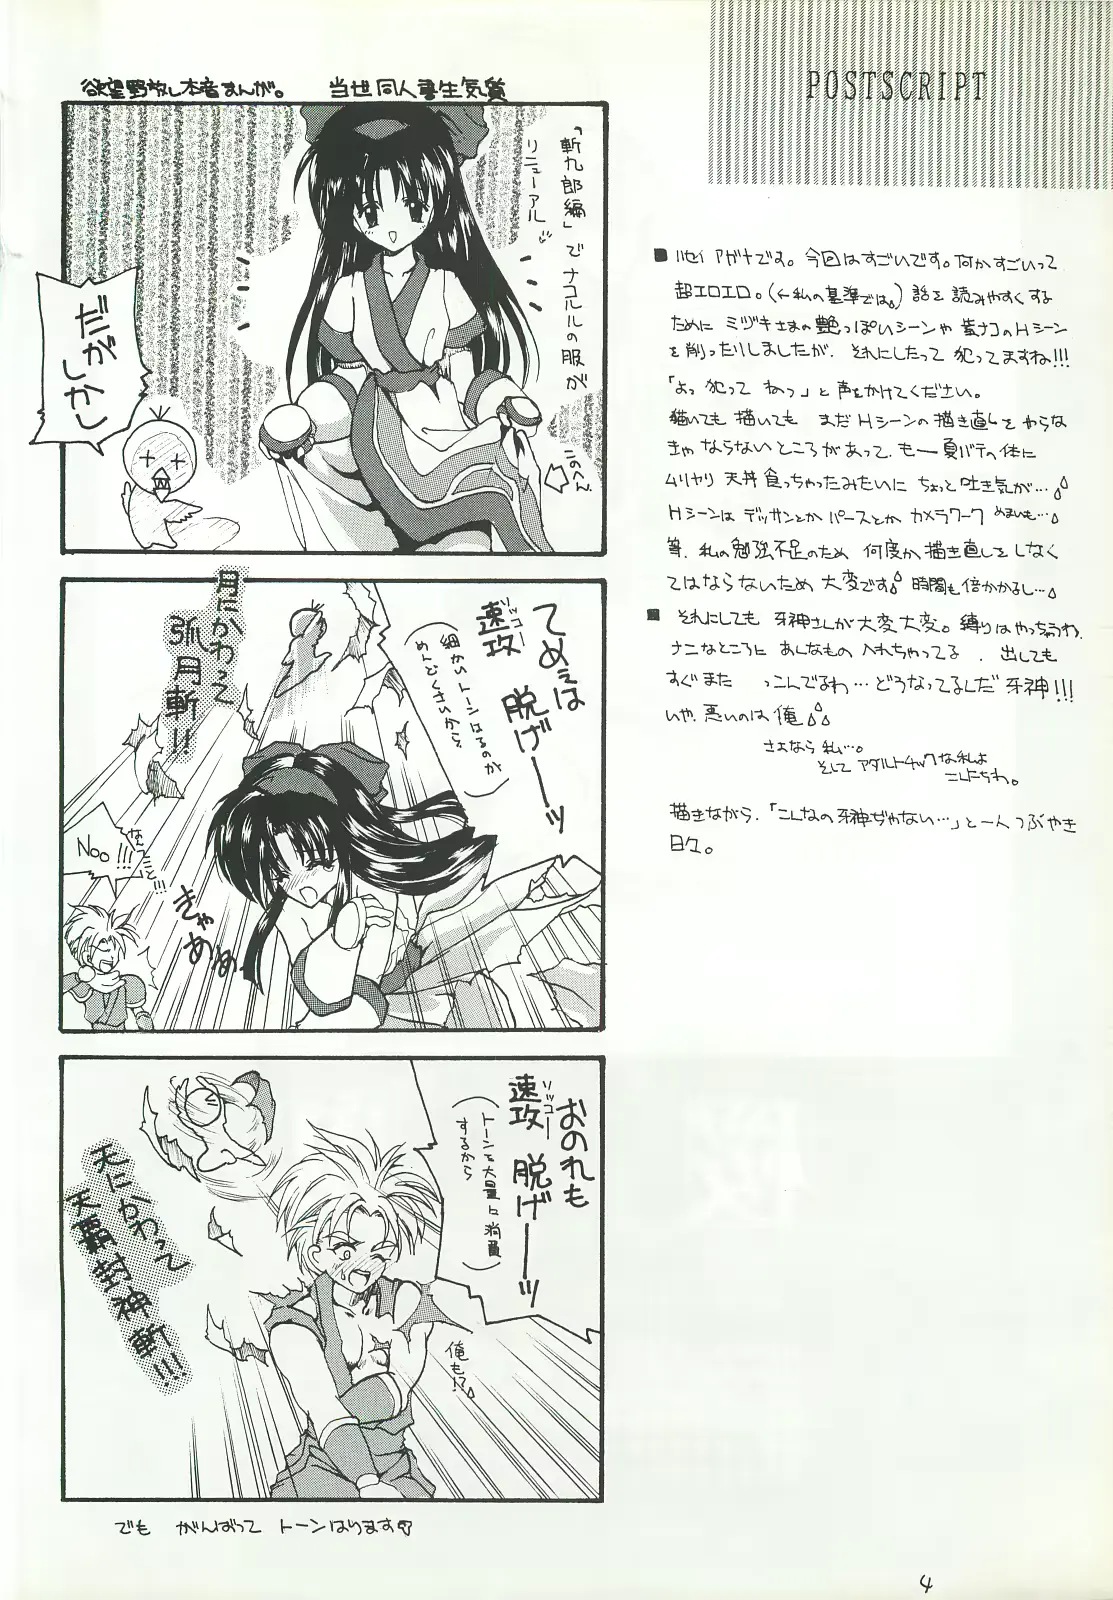 POSTSCRIPT
欲望野放し本音まんが。 当世同人書生気質
「斬九郎編」でナコルルの服が
リニューアル
だが
しかし
このへん
てめぇは
速攻 脱げーーッ
ソッコー
(細かいトーンはるのが
めんどくさいから)
月にかわって
弧月斬!!
なんつこと!!!
Noo!!!
きゃああぁ
おのれも
速攻 脱げーーッ
ソッコー
(トーンを大量に消費
するから)
天にかわって
天覇封神斬!!!
俺も!?
でも がんばって トーンはります
■ハセイ アガナです。今回はすごいです。何がすごいって
超エロエロ。(←私の基準では)話を読みやすくする
ために ミヅキさまの艶っぽいシーンや 蒼ナコのHシーン
を削ったりしましたが、それにしたって 犯ってますね!!!
「よっ 犯って ねっ」と声をかけてください。
描いても 描いても まだHシーンの描き直しをやらな
きゃ ならないところがあって、もー夏バテの体に
ムリヤリ 天丼 食っちゃったみたいに ちょっと吐き気が…
Hシーンは デッサンとか パースとか カメラワーク めまいも…
等、私の勉強不足のため 何度か描き直しをしなく
てはならないため 大変です 時間も倍かかるし…
■それにしても 牙神さんが大変大変。縛りはやっちゃうわ、
ナニなところに あんなもの 入れちゃってる、出しても
すぐまた っこんでるわ…どうなってるんだ 牙神!!!
いや、悪いのは 俺
さよなら 私…。
そして アダルトチックな私よ
こんにちわ。
描きながら、「こんなの 牙神ぢゃない…」と一人つぶやき
日々。
4